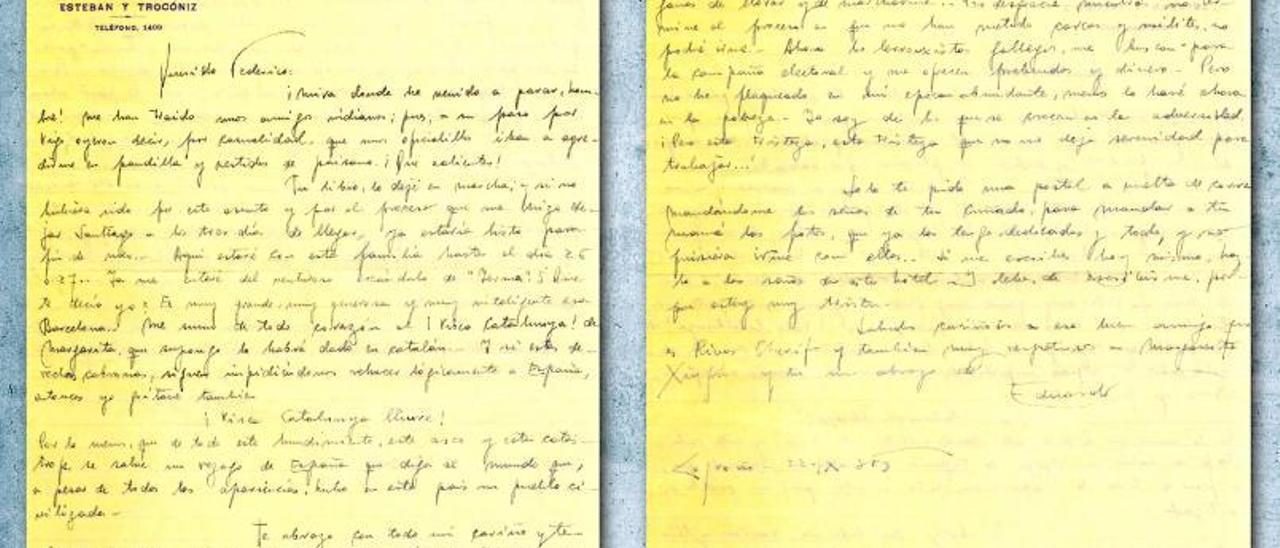 ESTEBAN Y TROCÓNIZ
TELÉFONO, 1400
Querido Federico:
¡Mira donde he venido a parar, hom-
bre! Me han traido unos amigos vidianos; pues, a su paso por
Vigo oyeron decir, por casualidad, que unos oficialillos iban a agre-
dirme en pandilla y vestidos de paisano. ¡Que valientes!
Tu libro, lo dejé en marcha; y si no
hubiera sido por este asunto y por el proceso que me obliga de-
jar Santiago a los tres días de llegar, ya estaría listo para
fin de mes. Aqui estaré con esta familia hasta el día 26
o 27. Ya me enteré del venturoso escándalo de "Yerma" ¿Que
te decía yo? Es muy grande, muy generosa y muy inteligente esa
Barcelona. Me uno de todo corazón al ¡Visca Catalunya! de
Margarita, que supongo lo habrá dado en catalán. Y si estos de-
rechas cabronas, siguen impidiéndonos rehacer lógicamente a España,
entonces yo gritaré también
¡Visca Catalunya lliure!
Por lo menos, que de todo este hundimiento, este asco y esta catás-
trofe se salve un regazo de España que diga al mundo que,
a pesar de todas las apariencias, hubo en este pais un pueblo ci-
vilizado.
Te abrazo con todo mi cariño y te-
ganas de llorar y de marcharme.
mine el proceso en que me han metido carcas y
podré irme. Ahora los lerrouxistas gallegos, me buscan para
la campaña electoral y me ofrecen y dinero. Pero
no he flaqueado en mi época abundante, menos lo haré ahora
en la pobreza. Yo soy de los que se crecen en la adversidad.
¡Pero esta tristeza, esta tristeza que no me deja serenidad para
trabajar...!
Solo te pido una postal a vuelta de correo
mandándome las señas de tu cuñado, para mandar a tu
mamá las fotos, que ya las tengo dedicadas y todo, y no
quisiera irme con ellas. Si me escribes hoy mismo, haz-
lo a las señas de este hotel. Y debes de escribirme, por
que estoy muy triste.
Saluda cariñoso a ese buen amigo que
es Rivas Cherif y también muy respetuoso a Margarita
Xirgu y tu un abrazo de
Eduardo